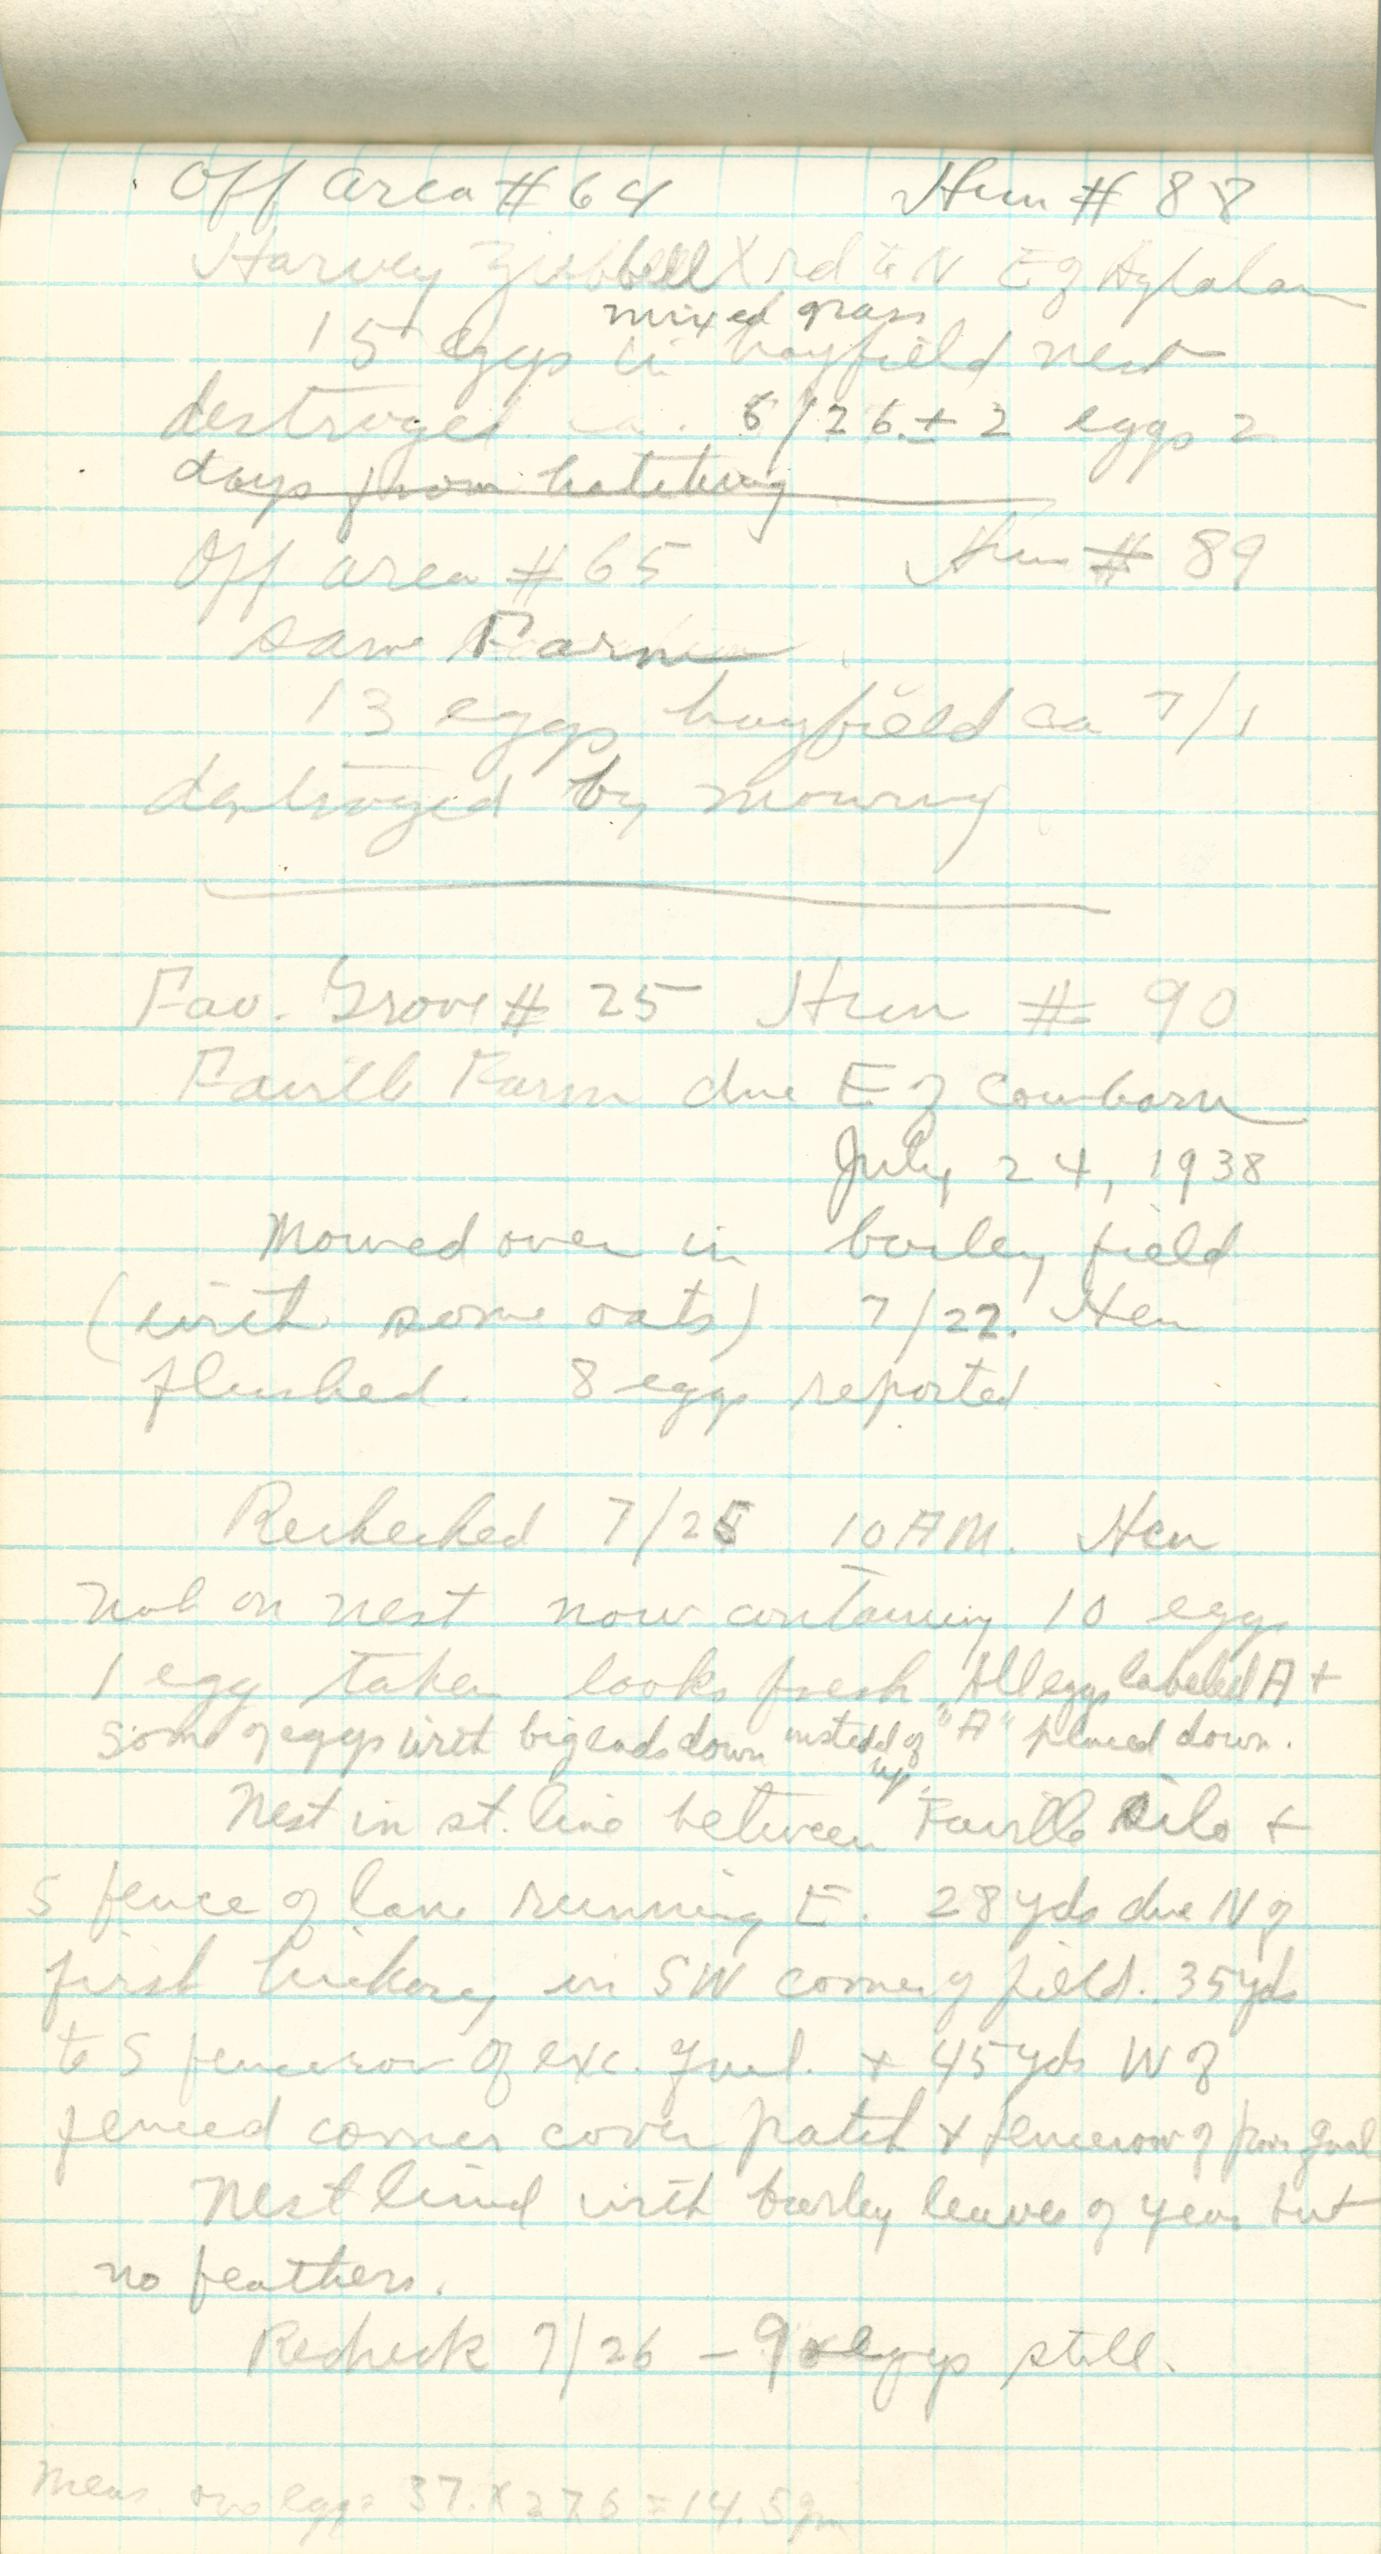 Off area # 64 Hun # 88
Harvey X rd to N E of Aztalan
mixed grass
15 eggs in hayfield nest
destroyed ca. 6/26 ± 2 eggs 2
days from hatching
Off area # 65 Hun # 89
same Farm
13 eggs hayfield ca 7/1
destroyed by mowing
Fav. Grove # 25 Hun # 90
Faville Farm due E of cowbarn
July 24, 1938
Mowed over in barley field
(with some oats) 7/22. Hen
flushed. 8 eggs reported
Rechecked 7/25 10 AM. Hen
not on nest now containing 10 eggs
1 egg taken looks fresh All eggs labeled A +
some of eggs with big ends down instead of "A" placed down.
up.
Nest in st. line between Faville silo +
S fence of lane running E. 28 yds due N of
first hickory in SW corner of field. 35 yds
to S fencerow of exc. qual. + 45 yds W of
fenced corner cover patch + fencerow of poor qual
Nest lined with barley leaves of year but
no feathers.
Recheck 7/26 – 9 eggs still.
Meas. one egg = 37. x 27.6 = 14.5 gm